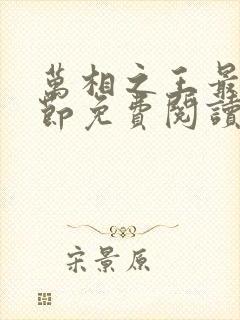 萬相之王最
節免費閱讀
宋景原